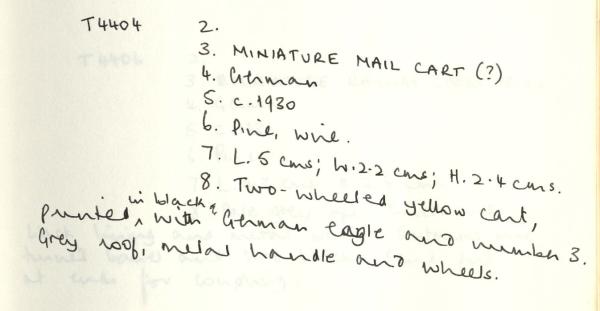 T4404 2.
3. MINIATURE MAIL CART (?)
4. German
5. c.1930
6. Pine, wire.
7. L. 5 cms; W. 2.2 cms; H. 2.4 cms.
8. Two-wheeled yellow cart,
printed in black with German eagle and number 3.
Grey roof, metal handle and wheels.